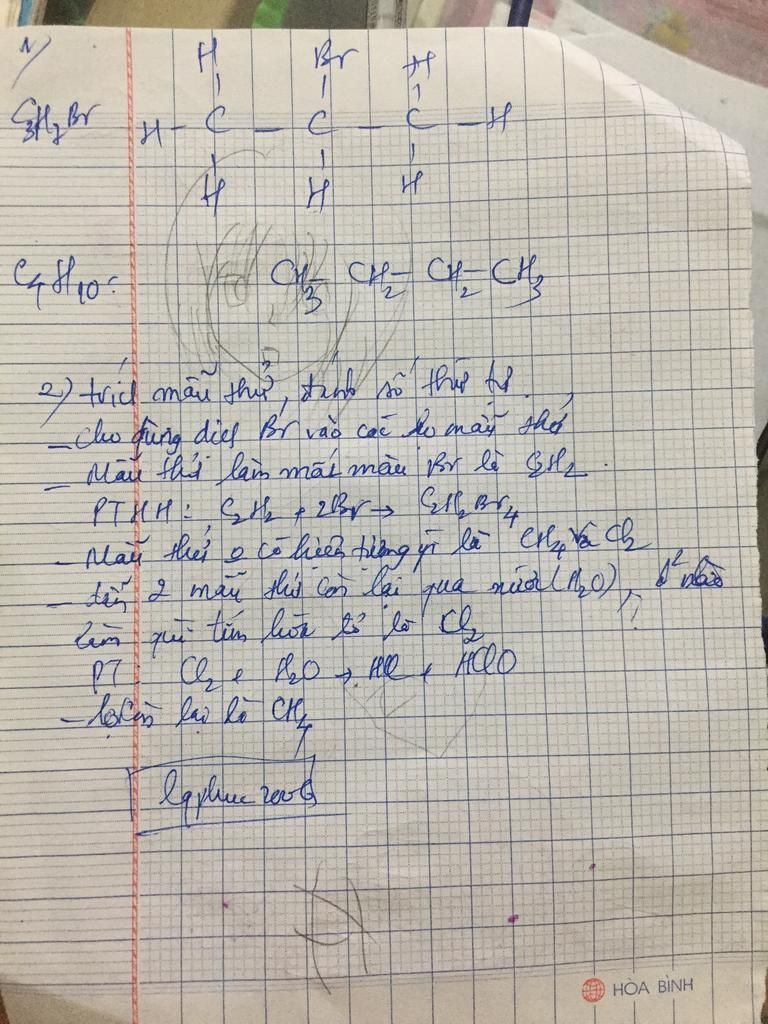 1)
H Br H
C3H7Br H - C - C - C - H
H H H
C4H10: CH3 - CH2 - CH2 - CH3
2) trích mẫu thử, đánh số thứ tự.
- Cho dung dịch Br vào các lọ mẫu thử
- Mẫu thử làm mất màu Br là C2H2.
PTHH: C2H2 + 2Br → C2H2Br4
- Mẫu thử o có hiện tượng gì là CH4 và Cl2
- dẫn 2 mẫu thử còn lại qua nước (H2O),
làm quì tím hóa đỏ là Cl2
PT: Cl2 + H2O → HCl + HClO
- lọ còn lại là CH4
HÒA BÌNH